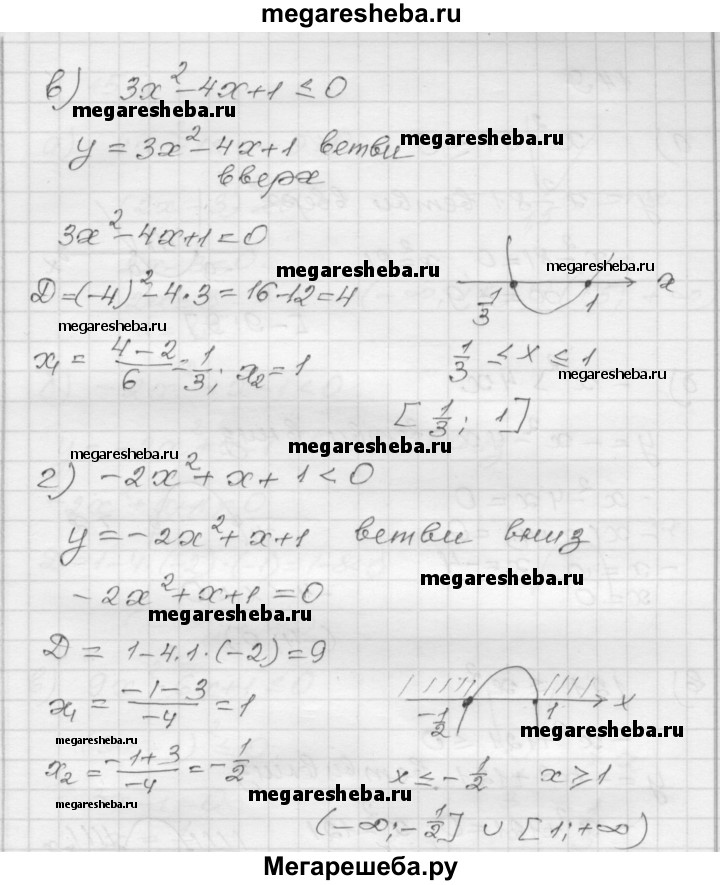 megaresheba.ru
в) 3x² - 4x + 1 ≤ 0
megaresheba.ru
megaresheba.ru
y = 3x² - 4x + 1 ветви
вверх
3x² - 4x + 1 = 0
megaresheba.ru
megaresheba.ru
Д = (-4)² - 4·3 = 16 - 12 = 4
1/3 1 x
megaresheba.ru
x₁ = (4 - 2)/6 = 1/3; x₂ = 1
1/3 ≤ x ≤ 1
megaresheba.ru
megaresheba.ru
[1/3; 1]
megaresheba.ru
megaresheba.ru
г) -2x² + x + 1 < 0
y = -2x² + x + 1 ветви вниз
megaresheba.ru
-2x² + x + 1 = 0
megaresheba.ru
Д = 1 - 4·1·(-2) = 9
x₁ = (-1 - 3)/-4 = 1
-1/2 1 x
megaresheba.ru
megaresheba.ru
x₂ = (-1 + 3)/-4 = -1/2
x ≤ -1/2 x ≥ 1
megaresheba.ru
megaresheba.ru
(-∞; -1/2] ∪ [1; +∞)
Мегарешеба.ру